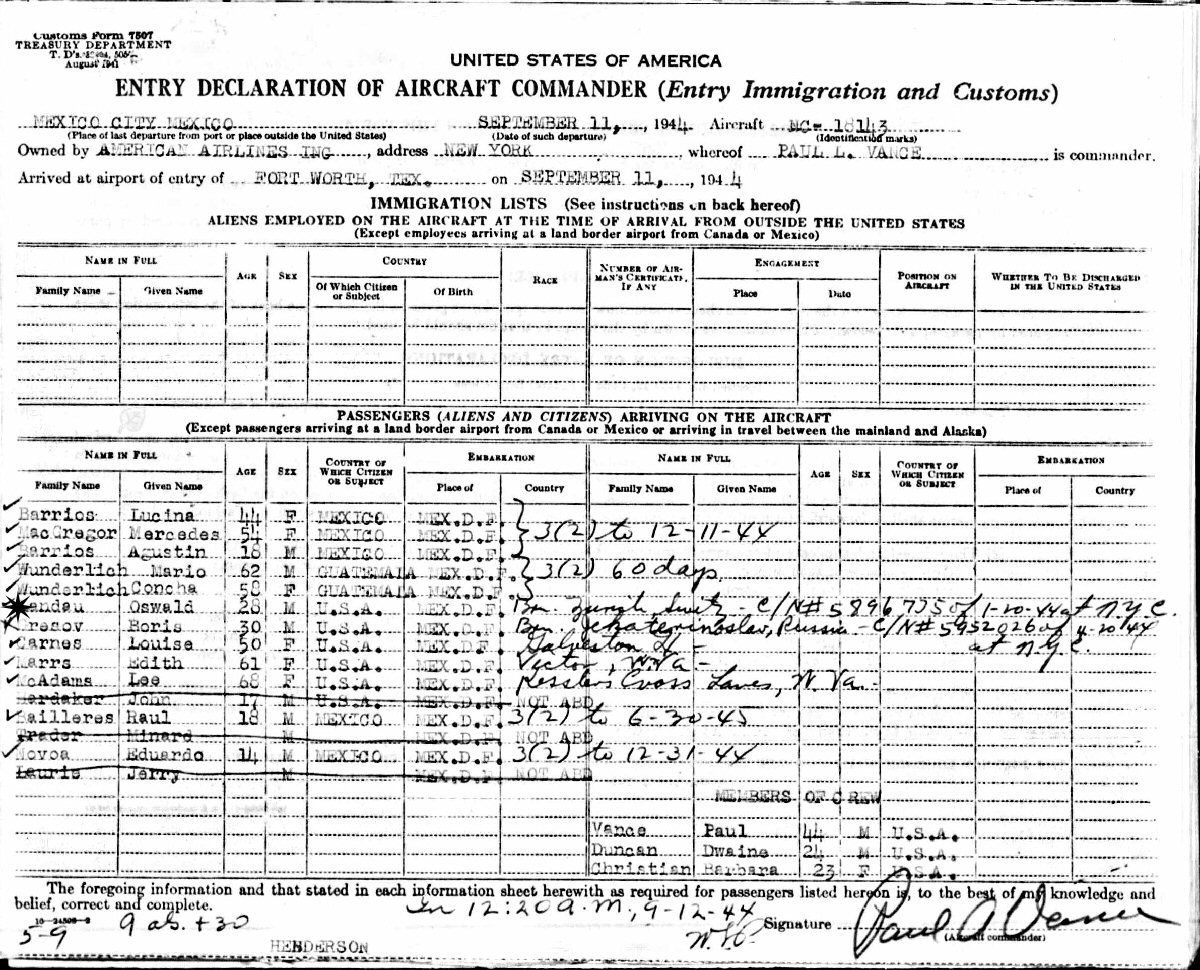 Customs Form 7507
TREASURY DEPARTMENT
August 1941
UNITED STATES OF AMERICA
ENTRY DECLARATION OF AIRCRAFT COMMANDER (Entry Immigration and Customs)
MEXICO CITY MEXICO SEPTEMBER 11, 1944 Aircraft NC- 18143
(Place of last departure from port or place outside the United States) (Date of such departure) (Identification marks)
Owned by AMERICAN AIRLINES INC , address NEW YORK whereof PAUL L. VANCE is commander.
Arrived at airport of entry of FORT WORTH, TEX. on SEPTEMBER 11, , 1944
IMMIGRATION LISTS (See instructions on back hereof)
ALIENS EMPLOYED ON THE AIRCRAFT AT THE TIME OF ARRIVAL FROM OUTSIDE THE UNITED STATES
(Except employees arriving at a land border airport from Canada or Mexico)
NAME IN FULL AGE SEX COUNTRY RACE NUMBER OF AIRMAN'S CERTIFICATE, IF ANY ENGAGEMENT POSITION ON AIRCRAFT WHETHER TO BE DISCHARGED IN THE UNITED STATES
Family Name Given Name Of Which Citizen or Subject Of Birth Place Date
PASSENGERS (ALIENS AND CITIZENS) ARRIVING ON THE AIRCRAFT
(Except passengers arriving at a land border airport from Canada or Mexico or arriving in travel between the mainland and Alaska)
NAME IN FULL AGE SEX COUNTRY OF WHICH CITIZEN OR SUBJECT EMBARKATION NAME IN FULL AGE SEX COUNTRY OF WHICH CITIZEN OR SUBJECT EMBARKATION
Family Name Given Name Place of Country Family Name Given Name Place of Country
Barrios Lucina 44 F MEXICO MEX.D.F.
MacGregor Mercedes 54 F MEXICO MEX.D.F. 3(2) to 12-11-44
Barrios Agustin 18 M MEXICO MEX.D.F.
Wunderlich Mario 62 M GUATEMALA MEX.D.F. 3(2) 60 days
Wunderlich Concha 58 F GUATEMALA MEX.D.F.
Landau Oswald 28 M U.S.A. MEX.D.F. Bn. Zurich Switz - C/N# 5896735 of 1-20-44 at N.Y.C.
Bresov Boris 30 M U.S.A. MEX.D.F. Bn. Jekaterinoslav, Russia - C/N# 5952026 of 4-20-44
at N.Y.C.
Carnes Louise 50 F U.S.A. MEX.D.F. Galveston
Marrs Edith 61 F U.S.A. MEX.D.F. Victor, W.Va -
McAdams Lee 68 F U.S.A. MEX.D.F. Kesslers Cross Lanes, W. Va. -
Hardaker John 17 M U.S.A. MEX.D.F. NOT ABD
Bailleres Raul 18 M MEXICO MEX.D.F. 3(2) to 6-30-45
Trader Minard M MEX.D.F. NOT ABD
Novoa Eduardo 14 M MEXICO MEX.D.F. 3(2) to 12-31-44
Laurie Jerry M MEX.D.F. NOT ABD
MEMBERS OF CREW
Vance Paul 44 M U.S.A.
Duncan Dwaine 24 M U.S.A.
Christian Barbara 23 F U.S.A.
The foregoing information and that stated in each information sheet herewith as required for passengers listed hereon is, to the best of my knowledge and
belief, correct and complete.
In 12:20 A.M., 9-12-44
Signature
(Aircraft commander)
5-9
HENDERSON